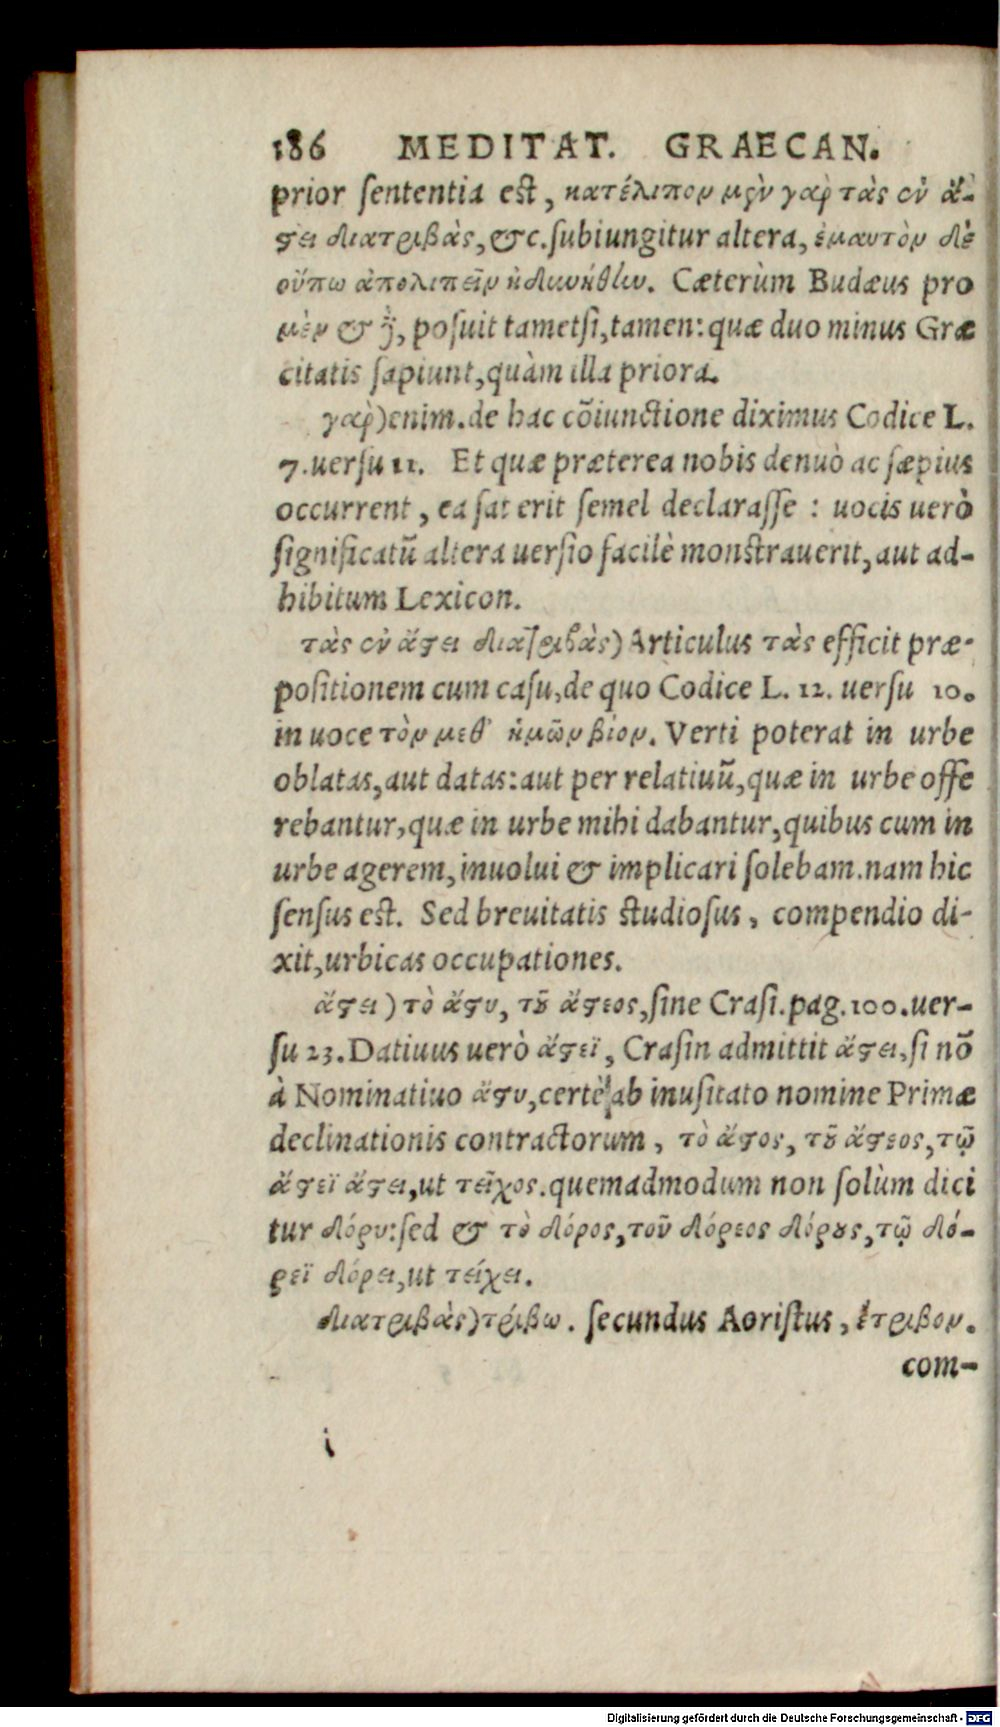 186 MEDITAT. GRAECAN.
prior sententia est, κατέλιπον μὲν γὰρ τὰς ἐν ἄ-
στει διατριβὰς, &c. subiungitur altera, ἐμαυτὸν δὲ
οὔπω ἀπολιπεῖν ἠδυνήθην. Cæterùm Budæus pro
μὲν & δὲ, posuit tametsi, tamen: quæ duo minus Græ
citatis sapiunt, quàm illa priora.
γὰρ) enim. de hac cõiunctione diximus Codice L.
7. uersu 11. Et quæ præterea nobis denuò ac sæpius
occurrent, ea sat erit semel declarasse: uocis uerò
significatũ altera uersio facilè monstrauerit, aut ad-
hibitum Lexicon.
τὰς ἐν ἄστει διατριβὰς) Articulus τὰς efficit præ-
positionem cum casu, de quo Codice L. 12. uersu 10.
in uoce τὸν μεθ' ἡμῶν βίον. Verti poterat in urbe
oblatas, aut datas: aut per relatiuũ, quæ in urbe offe
rebantur, quæ in urbe mihi dabantur, quibus cum in
urbe agerem, inuolui & implicari solebam. nam hic
sensus est. Sed breuitatis studiosus, compendio di-
xit, urbicas occupationes.
ἄστει) τὸ ἄστυ, τοῦ ἄστεος, sine Crasi. pag. 100. uer-
su 23. Datiuus uerò ἄστεϊ, Crasin admittit ἄστει, si nõ
à Nominatiuo ἄστυ, certè ab inusitato nomine Primæ
declinationis contractorum, τὸ ἄστος, τοῦ ἄστεος, τῷ
ἄστεϊ ἄστει, ut τεῖχος. quemadmodum non solùm dici
tur δόρυ: sed & τὸ δόρος, τοῦ δόρεος δόρους, τῷ δό-
ρεϊ δόρει, ut τείχει.
διατριβὰς) τρίβω. secundus Aoristus, ἔτριβον.
com-
Digitalisierung gefördert durch die Deutsche Forschungsgemeinschaft - DFG